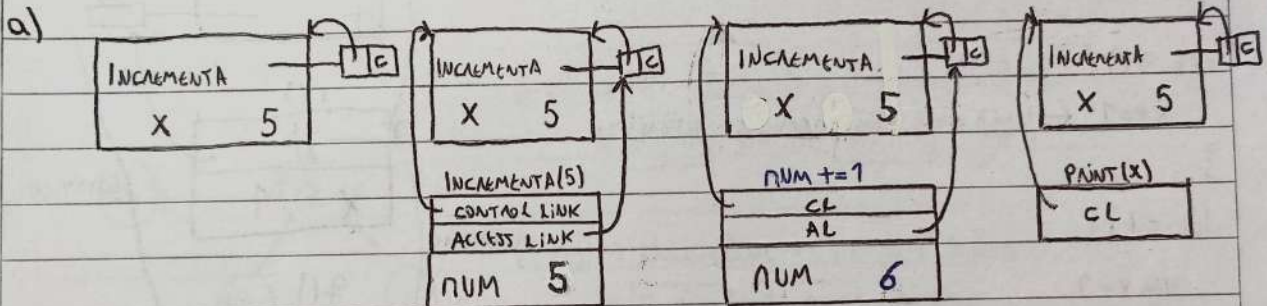 a)
INCREMENTA C
X 5
INCREMENTA C
X 5
INCREMENTA(5)
CONTROL LINK
ACCESS LINK
NUM 5
INCREMENTA C
X 5
NUM += 1
CL
AL
NUM 6
INCREMENTA C
X 5
PRINT(X)
CL